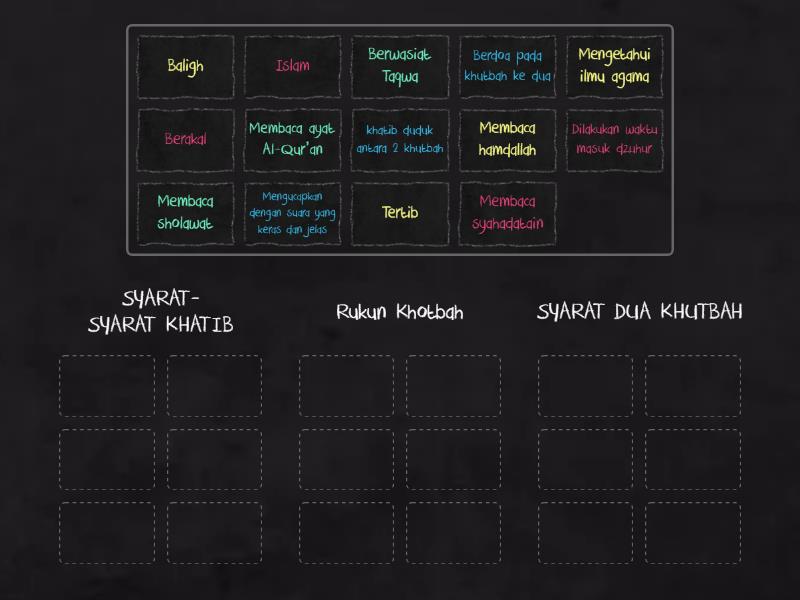 Baligh
Islam
Berwasiat
Taqwa
Berdoa pada
khutbah ke dua
Mengetahui
ilmu agama
Berakal
Membaca ayat
Al-Qur'an
khatib duduk
antara 2 khutbah
Membaca
hamdallah
Dilakukan waktu
masuk dzuhur
Membaca
sholawat
Mengucapkan
dengan suara yang
keras dan jelas
Tertib
Membaca
syahadatain
SYARAT-
SYARAT KHATIB
Rukun Khotbah
SYARAT DUA KHUTBAH